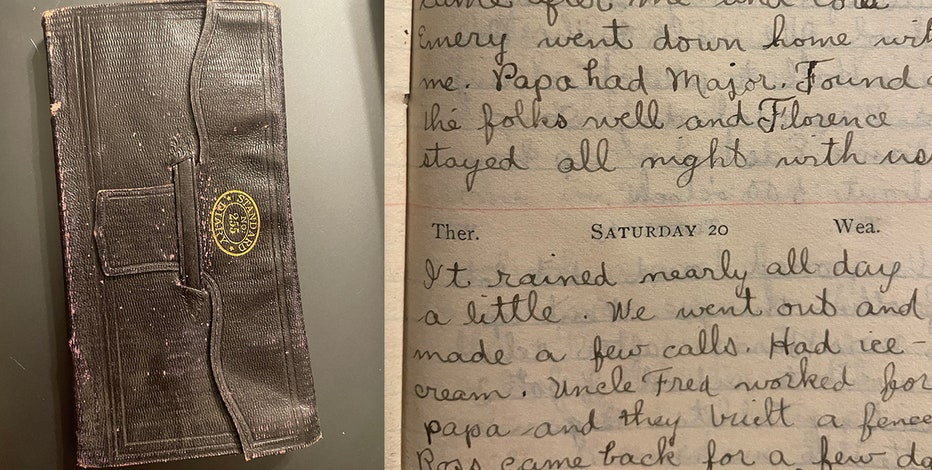 STANDARD
NO.
255
DIARY
came after me and
Emery went down home
me. Papa had Major. Found
the folks well and Florence
stayed all night with us
Ther. SATURDAY 20 Wea.
It rained nearly all day
a little. We went out and
made a few calls. Had ice-
cream. Uncle Fred worked for
papa and they built a fence
Ross came back for a few